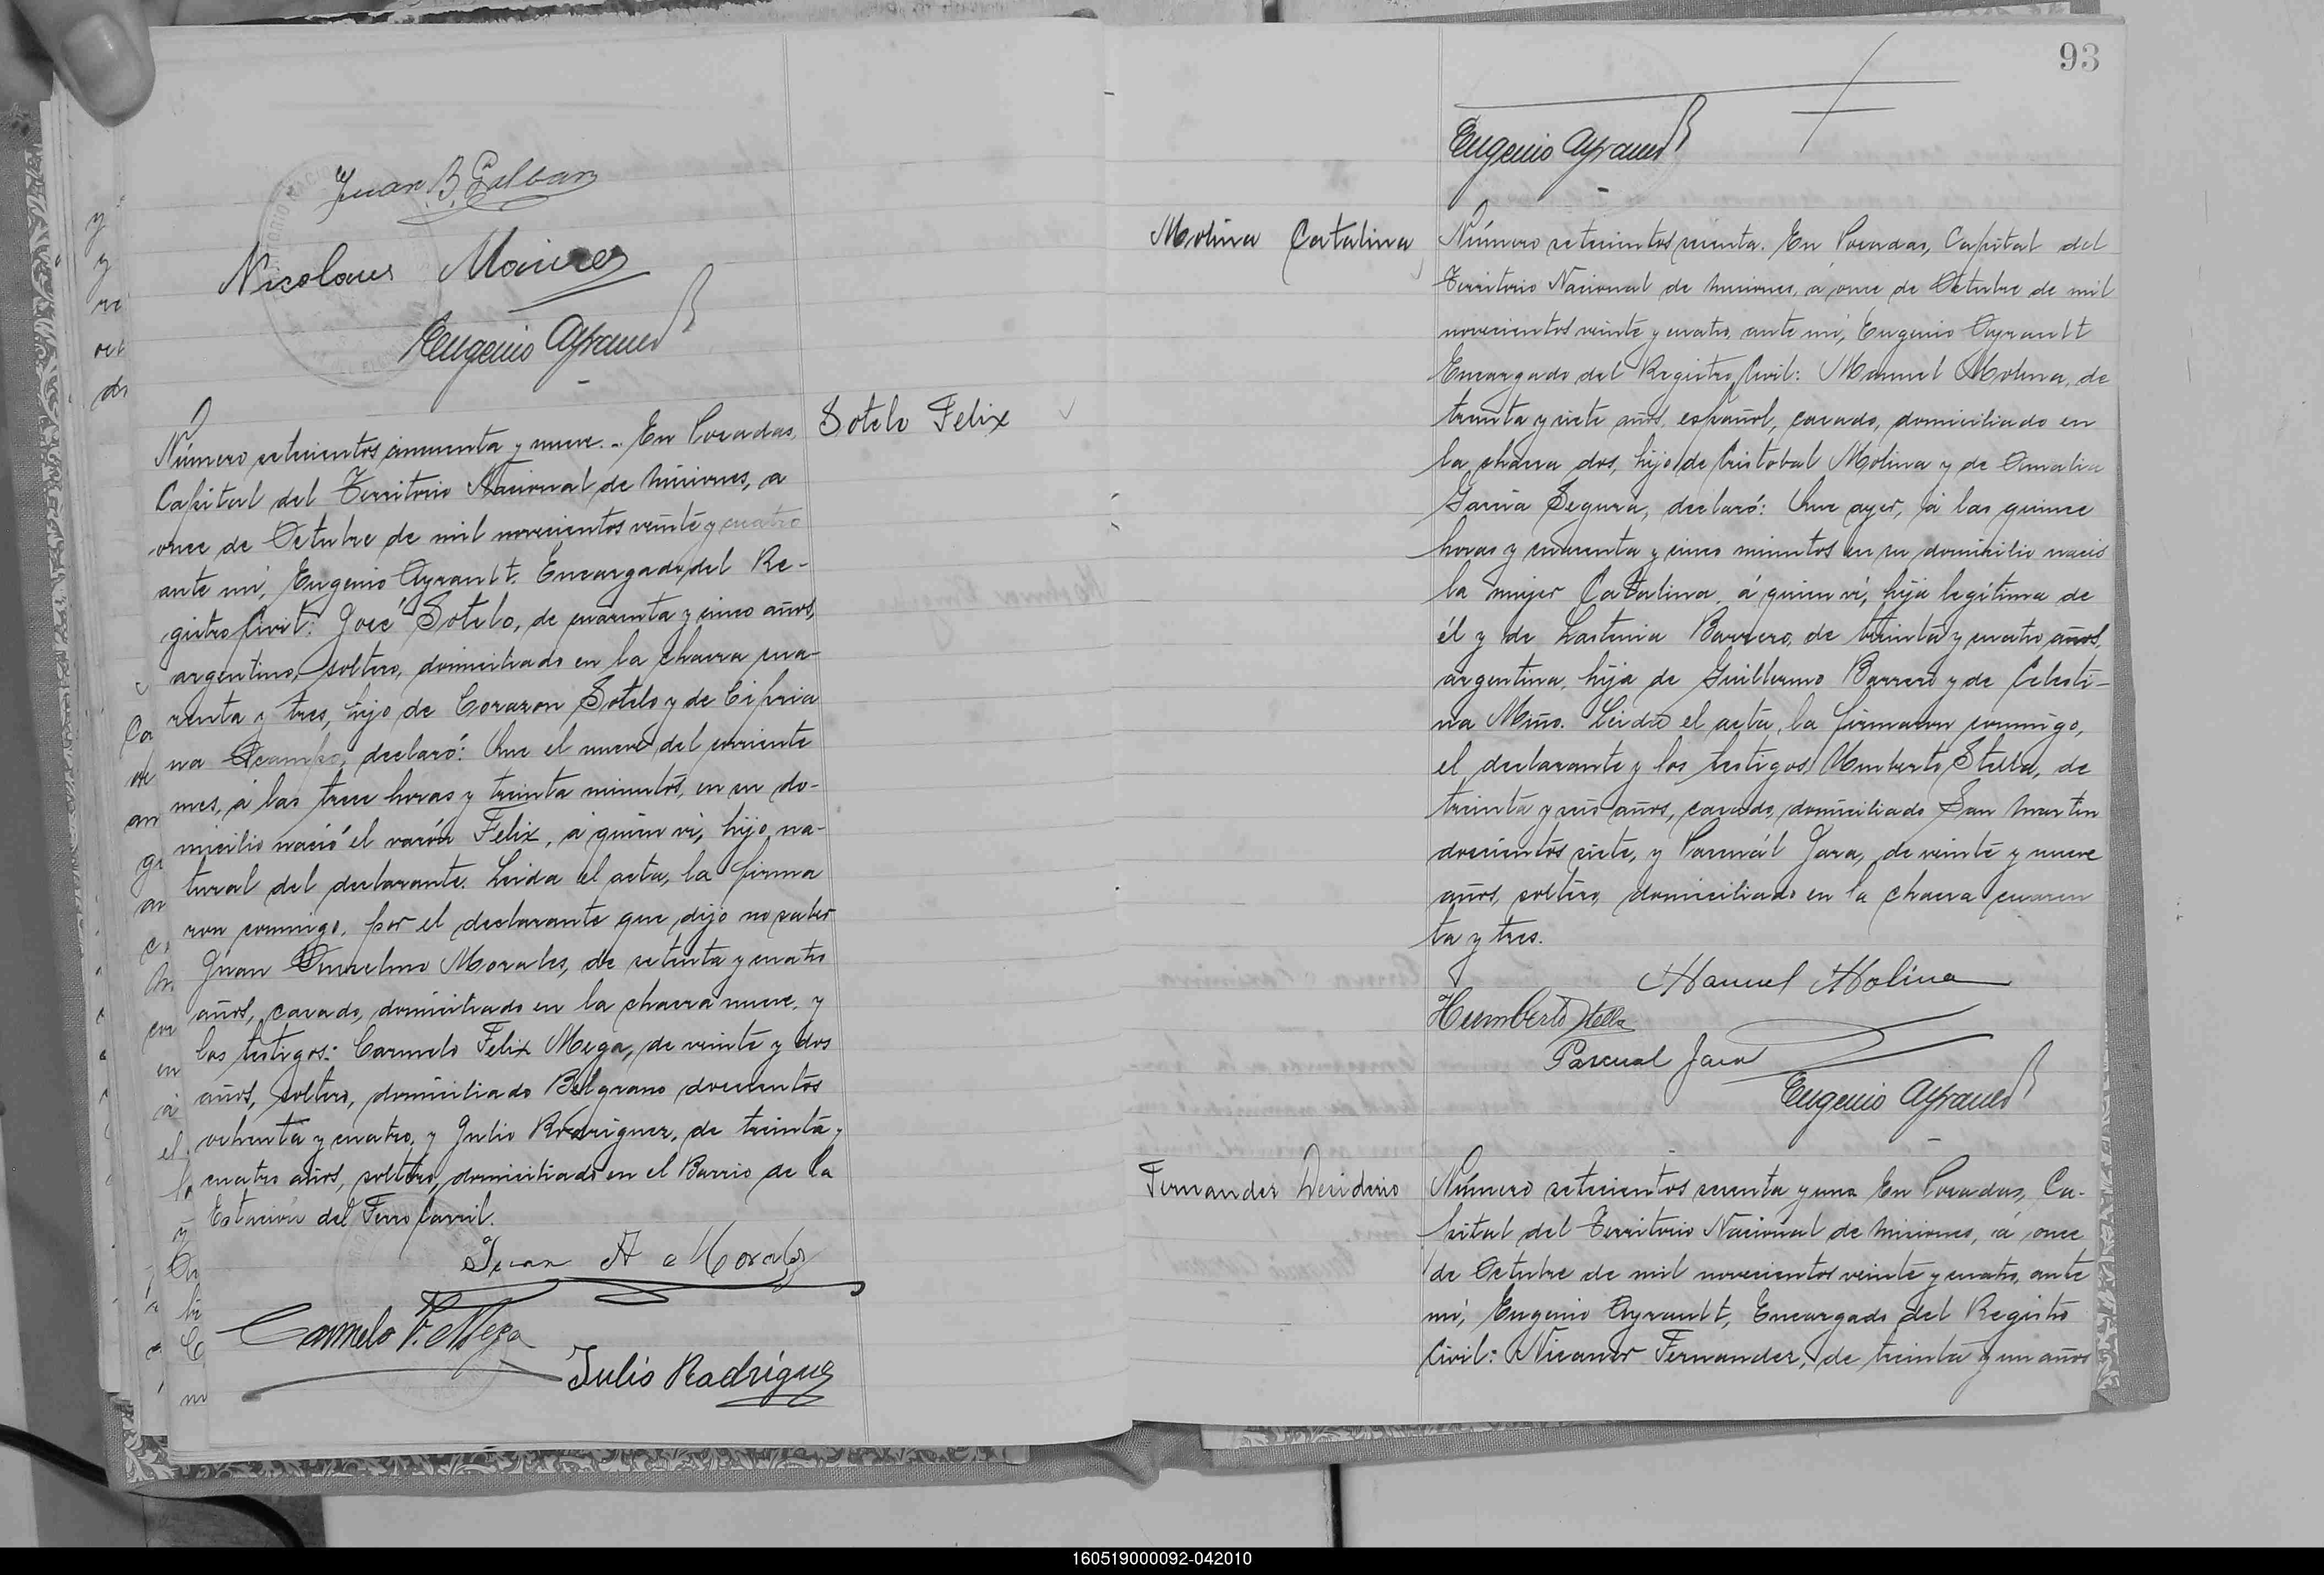 Juan B. Galban
Nicolaus
Eugenio Ayrault
Sotelo Felix
Número setecientos cincuenta y nueve. En Posadas,
Capital del Territorio Nacional de Misiones, a
once de Octubre de mil novecientos veinte y cuatro
ante mí, Eugenio Ayrault, Encargado del Re-
gistro Civil: José Sotelo, de cuarenta y cinco años,
argentino, soltero, domiciliado en la chacra cua-
renta y tres, hijo de Corazon Sotelo y de Cipria
na Ocampo, declaró: Que el nueve del corriente
mes, á las trece horas y treinta minutos, en su do-
micilio nació el varón Felix, á quien ví, hijo na-
tural del declarante. Leida el acta, la firma
ron conmigo, por el declarante que dijo no saber
Juan Anselmo Morales, de setenta y cuatro
años, casado, domiciliado en la chacra nueve, y
los testigos: Carmelo Felix Mega, de veinte y dos
años, soltero, domiciliado Belgrano doscientos
ochenta y cuatro, y Julio Rodriguez, de treinta y
cuatro años, soltero, domiciliado en el Barrio de la
Estación del Ferro Carril.
Juan A Morales
Carmelo F. Mega
Julio Rodriguez
93
Eugenio Ayrault
Molina Catalina
Número setecientos sesenta. En Posadas, Capital del
Territorio Nacional de Misiones, á once de Octubre de mil
novecientos veinte y cuatro, ante mí, Eugenio Ayrault
Encargado del Registro Civil: Manuel Molina, de
treinta y siete años, español, casado, domiciliado en
la chacra dos, hijo de Cristobal Molina y de Amalia
Garcia Segura, declaró: Que ayer, á las quince
horas y cuarenta y cinco minutos en su domicilio nació
la mujer Catalina, á quien ví, hija legítima de
él y de Lastenia Barrero, de treinta y cuatro años,
argentina, hija de Guillermo Barrero y de Celesti-
na Miño. Leida el acta, la firmaron conmigo,
el declarante y los testigos Umberto Stella, de
treinta y seis años, casado, domiciliado San Martin
doscientos siete, y Pascual Jara, de veinte y nueve
años, soltero, domiciliado en la chacra cuaren
ta y tres.
Manuel Molina
Humberto Stella
Pascual Jara
Eugenio Ayrault
Fernandez Desiderio
Número setecientos sesenta y uno. En Posadas, Ca-
pital del Territorio Nacional de Misiones, á once
de Octubre de mil novecientos veinte y cuatro, ante
mí, Eugenio Ayrault, Encargado del Registro
Civil: Nicanor Fernandez, de treinta y un años
160519000092-042010